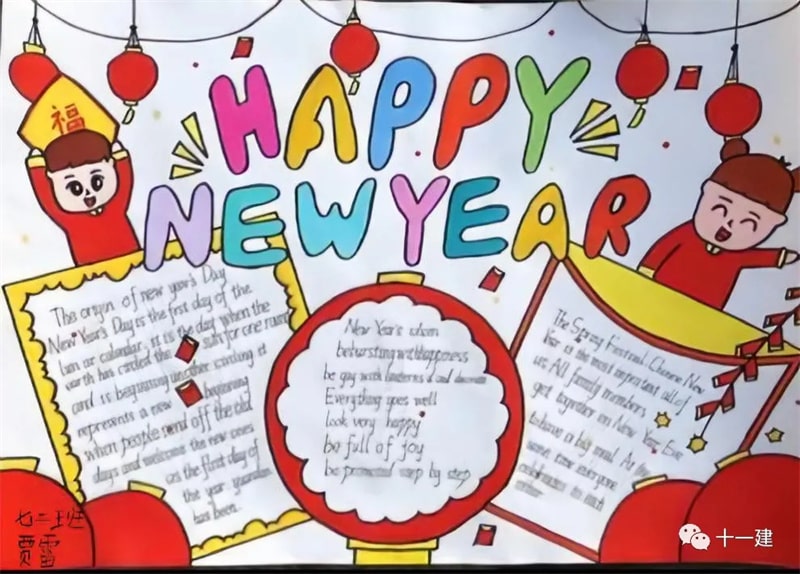 福
HAPPY
NEW YEAR
The origin of new year's Day
New Year's Day is the first day of the
lun ar calendar. it is the day when the
earth has circled the sun for one round
and is beginning another circling it
represents a new beginning
when people off the old
days and welcome the new ones
as the first day of
the year
has been
New Year's
be bursting with happiness
be gay with lanterns and
Everything goes well
look very happy
be full of joy
be promoted step by step
The Spring Festival, Chinese New
Year is the most important all of
us. All family members
get together on New Year Eve
to have a big meal. At the
same time everyone
celebrates to each
other
七二班
贾雷
十一建